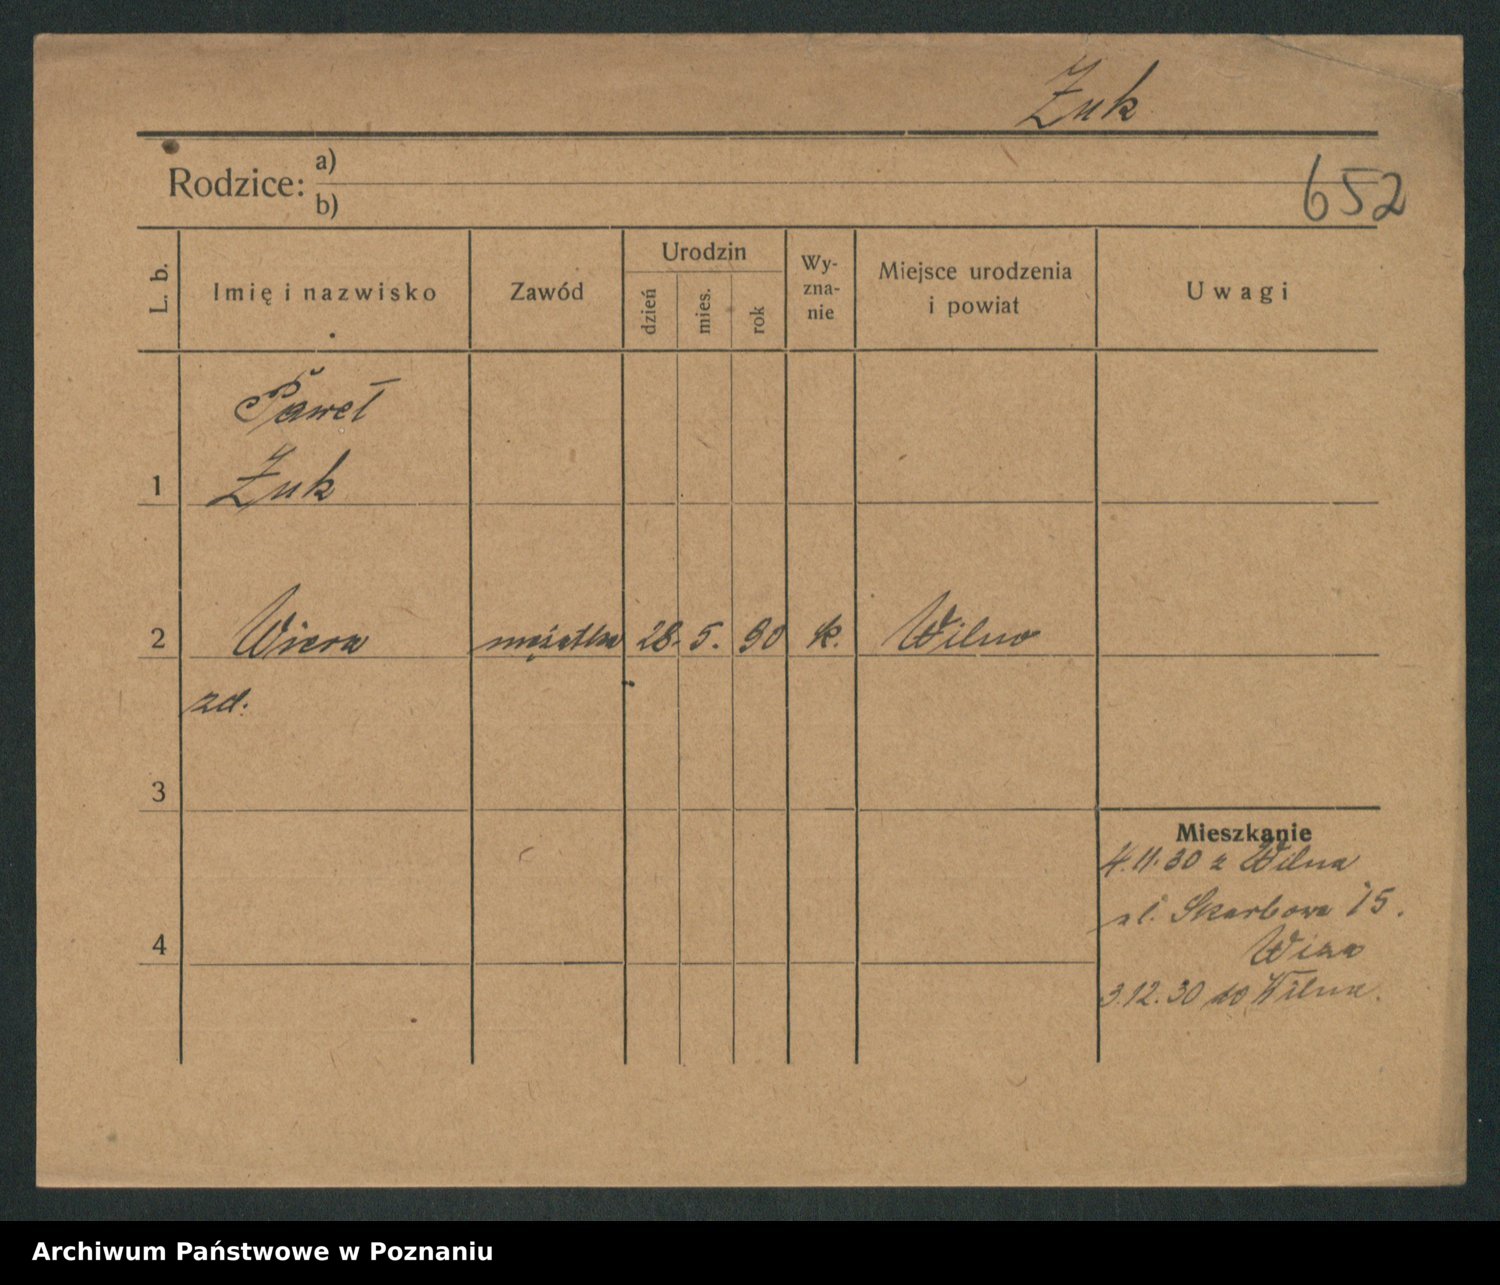 Żuk
Rodzice: a)
b)
652
L. b.
Imię i nazwisko
Zawód
Urodzin
dzień
mies.
rok
Wy-
zna-
nie
Miejsce urodzenia
i powiat
Uwagi
Paweł
1 Żuk
2 Wiera mężatka 28. 5. 90 k. Wilno
zd.
3
Mieszkanie
4.11.30 z Wilna
ul. Skarbowa 15.
4
3.12.30 do Wilna.
Archiwum Państwowe w Poznaniu